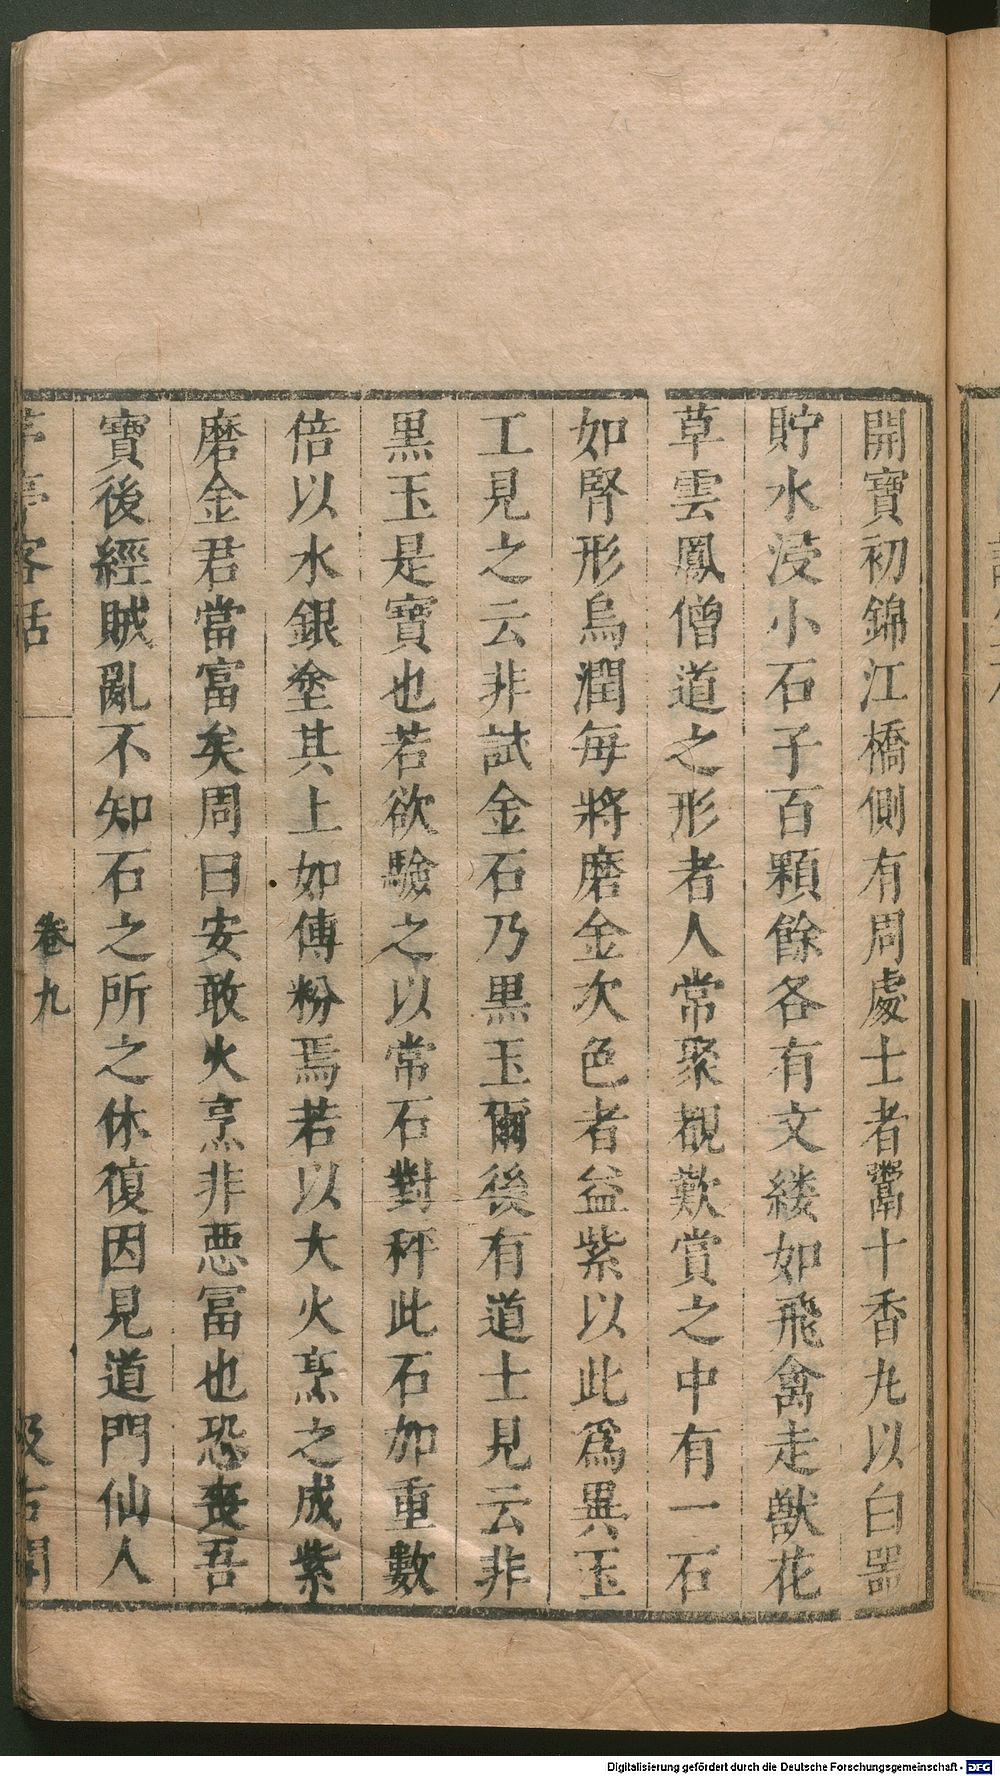 開寶初錦江橋側有周處士者鬻十香丸以白器
貯水浸小石子百顆餘各有文縷如飛禽走獸花
草雲鳳僧道之形者人常聚覩歎賞之中有一石
如腎形烏潤每將磨金次色者益紫以此爲異玉
工見之云非試金石乃黒玉爾後有道士見云非
黒玉是寶也若欲驗之以常石對秤此石加重數
倍以水銀塗其上如傅粉焉若以大火烹之成紫
磨金君當富矣周曰安敢火烹非惡冨也恐喪吾
寶後經賊亂不知石之所之休復因見道門仙人
茅亭客話 卷九 汲古閣
Digitalisierung gefördert durch die Deutsche Forschungsgemeinschaft - DFG